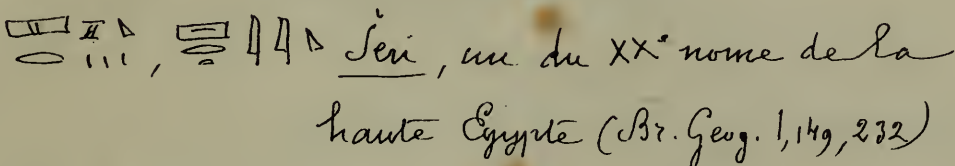 , Šeri, un du XX° nome de la
haute Egypte (Br. Geog. I, 149, 232)